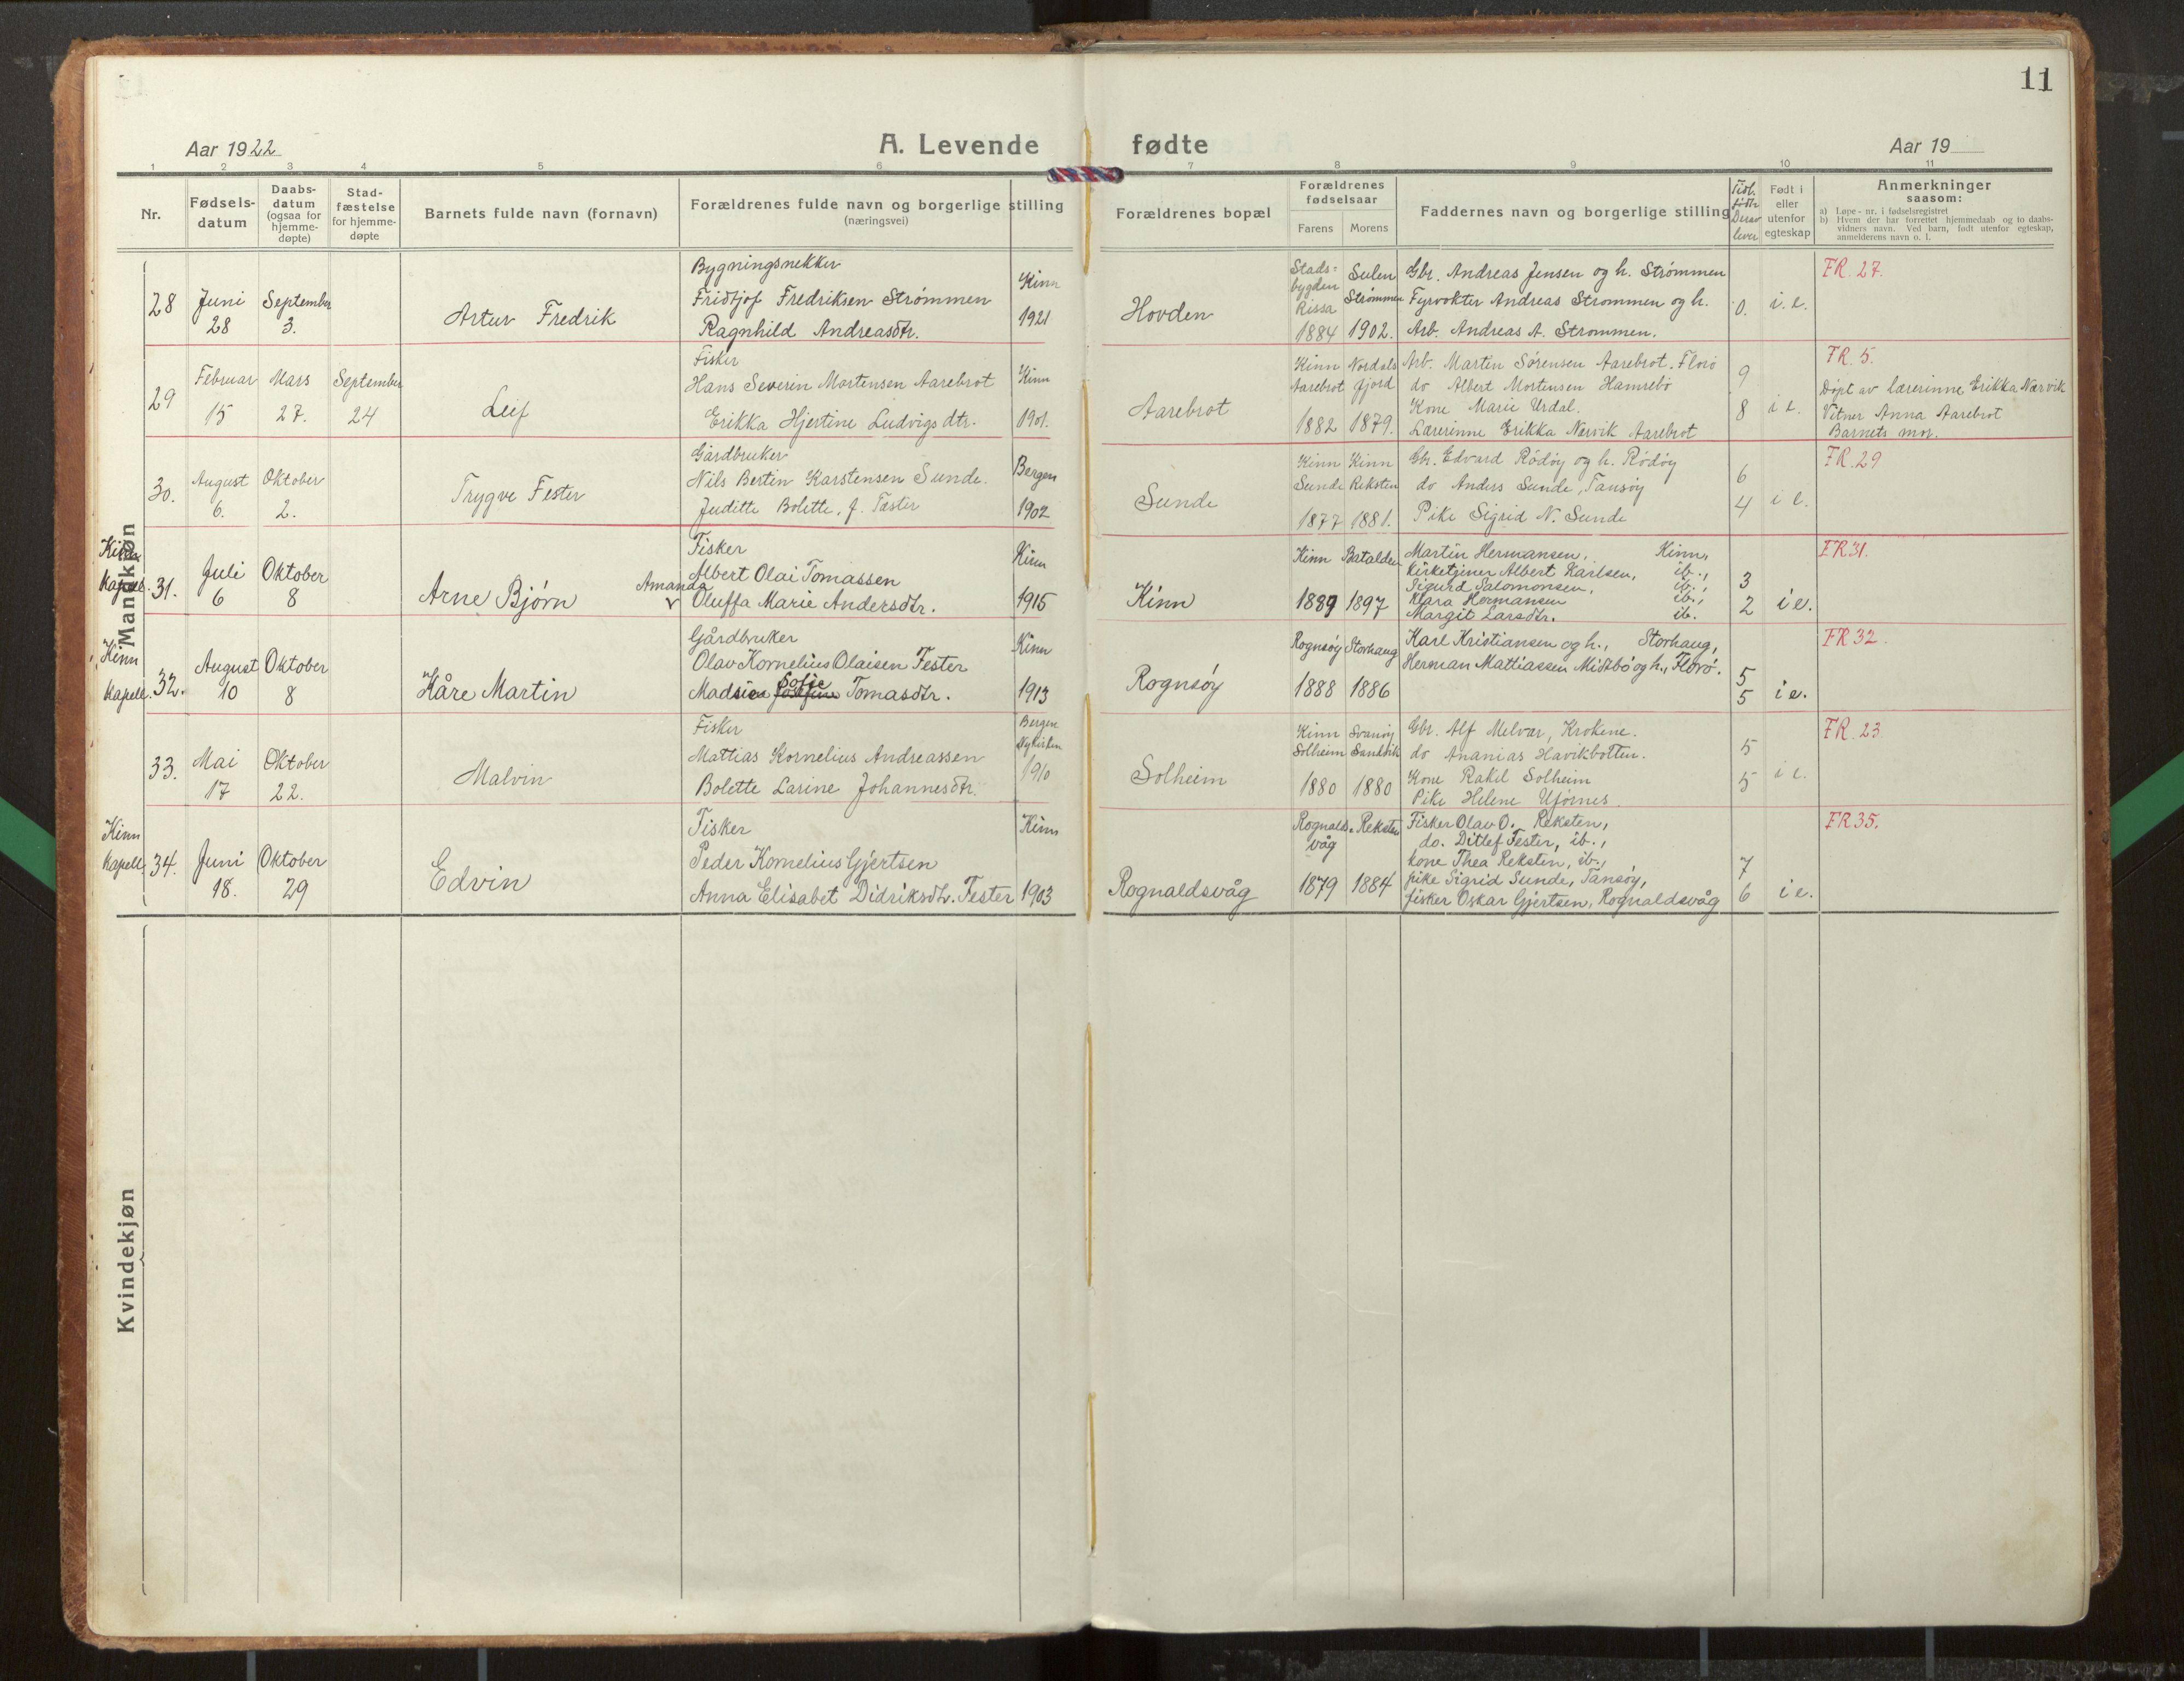 11
Aar 1922
A. Levende fødte
Aar 19
1 2 3 4 5 6 7 8 9 10 11
Nr.
Fødsels-
datum
Daabs-
datum
(ogsaa for
hjemme-
døpte)
Stad-
fæstelse
for hjemme-
døpte
Barnets fulde navn (fornavn)
Forældrenes fulde navn og borgerlige stilling
(næringsvei)
Forældrenes bopæl
Forældrenes
fødselsaar
Farens Morens
Faddernes navn og borgerlige stilling
Tidl.
født
Derav
lever
Født i
eller
utenfor
egteskap
Anmerkninger
saasom:
a) Løpe-nr. i fødselsregistret
b) Hvem der har forrettet hjemmedaab og to daabs-
vidners navn. Ved barn, født utenfor egteskap,
anmelderens navn o. l.
Mandkjøn
28
Juni
28
September
3.
Artur Fredrik
Bygningsnekker
Fridtjof Fredriksen Strømmen
Ragnhild Andreasdtr.
Kinn
1921
Hovden
Stads-
bygden
Rissa
1884
Sulen
Strømmen
1902.
Gbr. Andreas Jensen og h. Strømmen
Fyrvokter Andreas Strømmen og h.
Arb. Andreas A. Strømmen.
0.
i. e.
FR. 27.
29
Februar
15
Mars
27.
September
24
Leif
Fisker
Hans Severin Mortensen Aarebrot
Erikka Hjertine Ludvigsdtr.
Kinn
1901.
Aarebrot
Kinn
Aarebrot
1882
Nordals
fjord
1879.
Arb. Martin Sørensen Aarebrot. Florø
do Albert Mortensen Hamrebø
Kone Marie Urdal.
Lærerinne Erikka Nærvik Aarebrot
9
8
i e.
FR. 5.
Døpt av lærerinne Erikka Nærvik
Vitner Anna Aarebrot
Barnets mor.
30.
August
6.
Oktober
2.
Trygve Fester
Gårdbruker
Nils Bertin Karstensen Sunde.
Juditte Bolette, f. Fæster
Bergen
1902
Sunde
Kinn
Sunde
1877
Kinn
Reksten
1881.
Gbr. Edvard Rødøy og h. Rødøy
do Anders Sunde, Tansøy
Pike Sigrid N. Sunde
6
4
i e.
FR. 29
Kinn
Kapell.
31.
Juli
6
Oktober
8
Arne Bjørn
Fisker
Albert Olai Tomassen
Amanda
Oluffa Marie Andersdtr.
Kinn
1915
Kinn
Kinn
1889
Batalden
1897
Martin Hermansen, Kinn,
Kirketjener Albert Karlsen, ib.,
Sigurd Salomonsen, ib.,
Klara Hermansen ib.,
Margit Larsdtr. ib.
3
2
i e.
FR 31.
Kinn
Kapell.
32.
August
10
Oktober
8
Kåre Martin
Gårdbruker
Olav Kornelius Olaisen Fester
Sofie
Madsien Josefine Tomasdtr.
Kinn
1913
Rognsøy
Rognsøy
1888
Storhaug
1886
Karl Kristiansen og h., Storhaug,
Herman Mattiassen Midtbø og h., Florø.
5
5
i e.
FR 32.
33.
Mai
17
Oktober
22.
Malvin
Fisker
Mattias Kornelius Andreassen
Bolette Larine Johannesdtr.
Bergen
Nykirken
1910
Solheim
Kinn
Solheim
1880
Svanøy
Sandvik
1880
Gbr. Alf Melvær, Krokene.
do Ananias Havikbotten.
Kone Rakel Solheim
Pike Helene Uførnes.
5
5
i e.
FR. 23
Kinn
Kapell.
34.
Juni
18.
Oktober
29
Edvin
Fisker
Peder Kornelius Gjertsen
Anna Elisabet Didriksdtr. Fester
Kinn
1903
Rognaldsvåg
Rognalds-
våg
1879
Reksten
1884
Fisker Olav O. Reksten,
do. Ditlef Fester, ib.,
kone Thea Reksten, ib.,
pike Sigrid Sunde, Tansøy,
fisker Oskar Gjertsen, Rognaldsvåg
7
6
i e.
FR 35.
Kvindekjøn